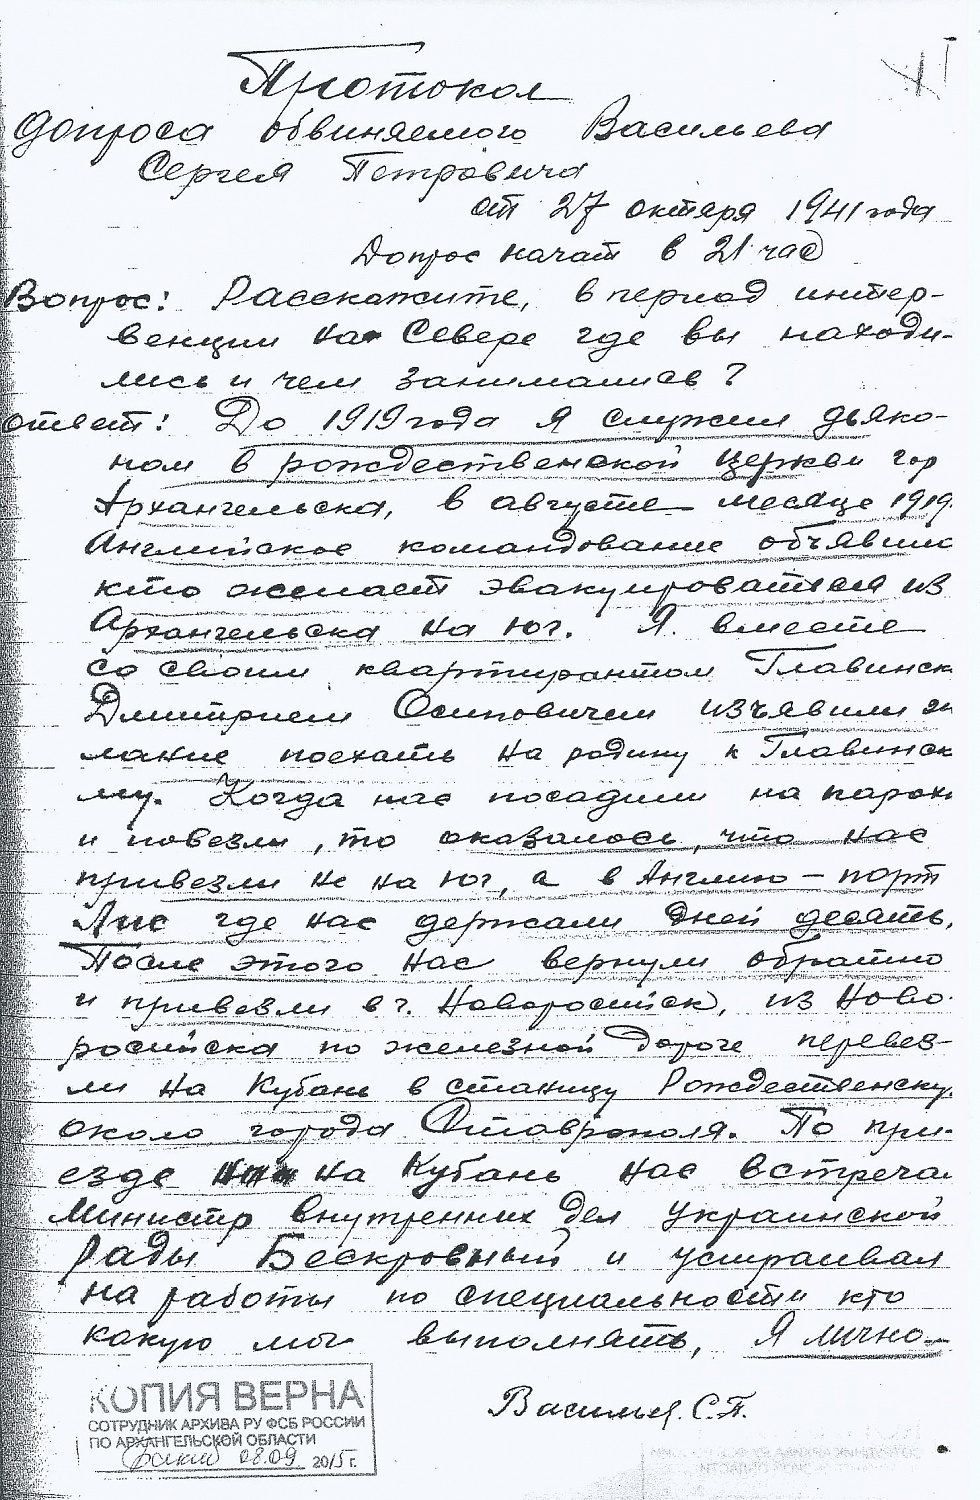 Протокол
допроса обвиняемого Васильева
Сергея Петровича
от 27 октября 1941 года
Допрос начат в 21 час
Вопрос: Расскажите, в период интер-
венции на Севере где вы находи-
лись и чем занимались?
Ответ: До 1919 года я служил дьяко-
ном в рождественской церкви гор
Архангельска, в августе месяце 1919.
Английское командование объявило
кто желает эвакуироваться из
Архангельска на юг. Я вместе
со своим квартирантом Главинск
Дмитрием Осиповичем изъявили же
лание поехать на родину к Главинск
му. Когда нас посадили на парох
и повезли, то оказалось, что нас
привезли не на юг, а в Англию – порт
Лис где нас держали дней десять.
После этого нас вернули обратно
и привезли в г. Новоросийск, из Ново-
росийска по железной дороге перевез-
ли на Кубань в станицу Рождественску
около города Ставрополя. По при-
езде на Кубань нас встречал
Министр внутренних дел украинской
Рады Бескровный и устраивал
на работы по специальности кто
какую мог выполнять, Я лично
Васильев. С.П.
КОПИЯ ВЕРНА
СОТРУДНИК АРХИВА РУ ФСБ РОССИИ
ПО АРХАНГЕЛЬСКОЙ ОБЛАСТИ
08.09 2015 г.